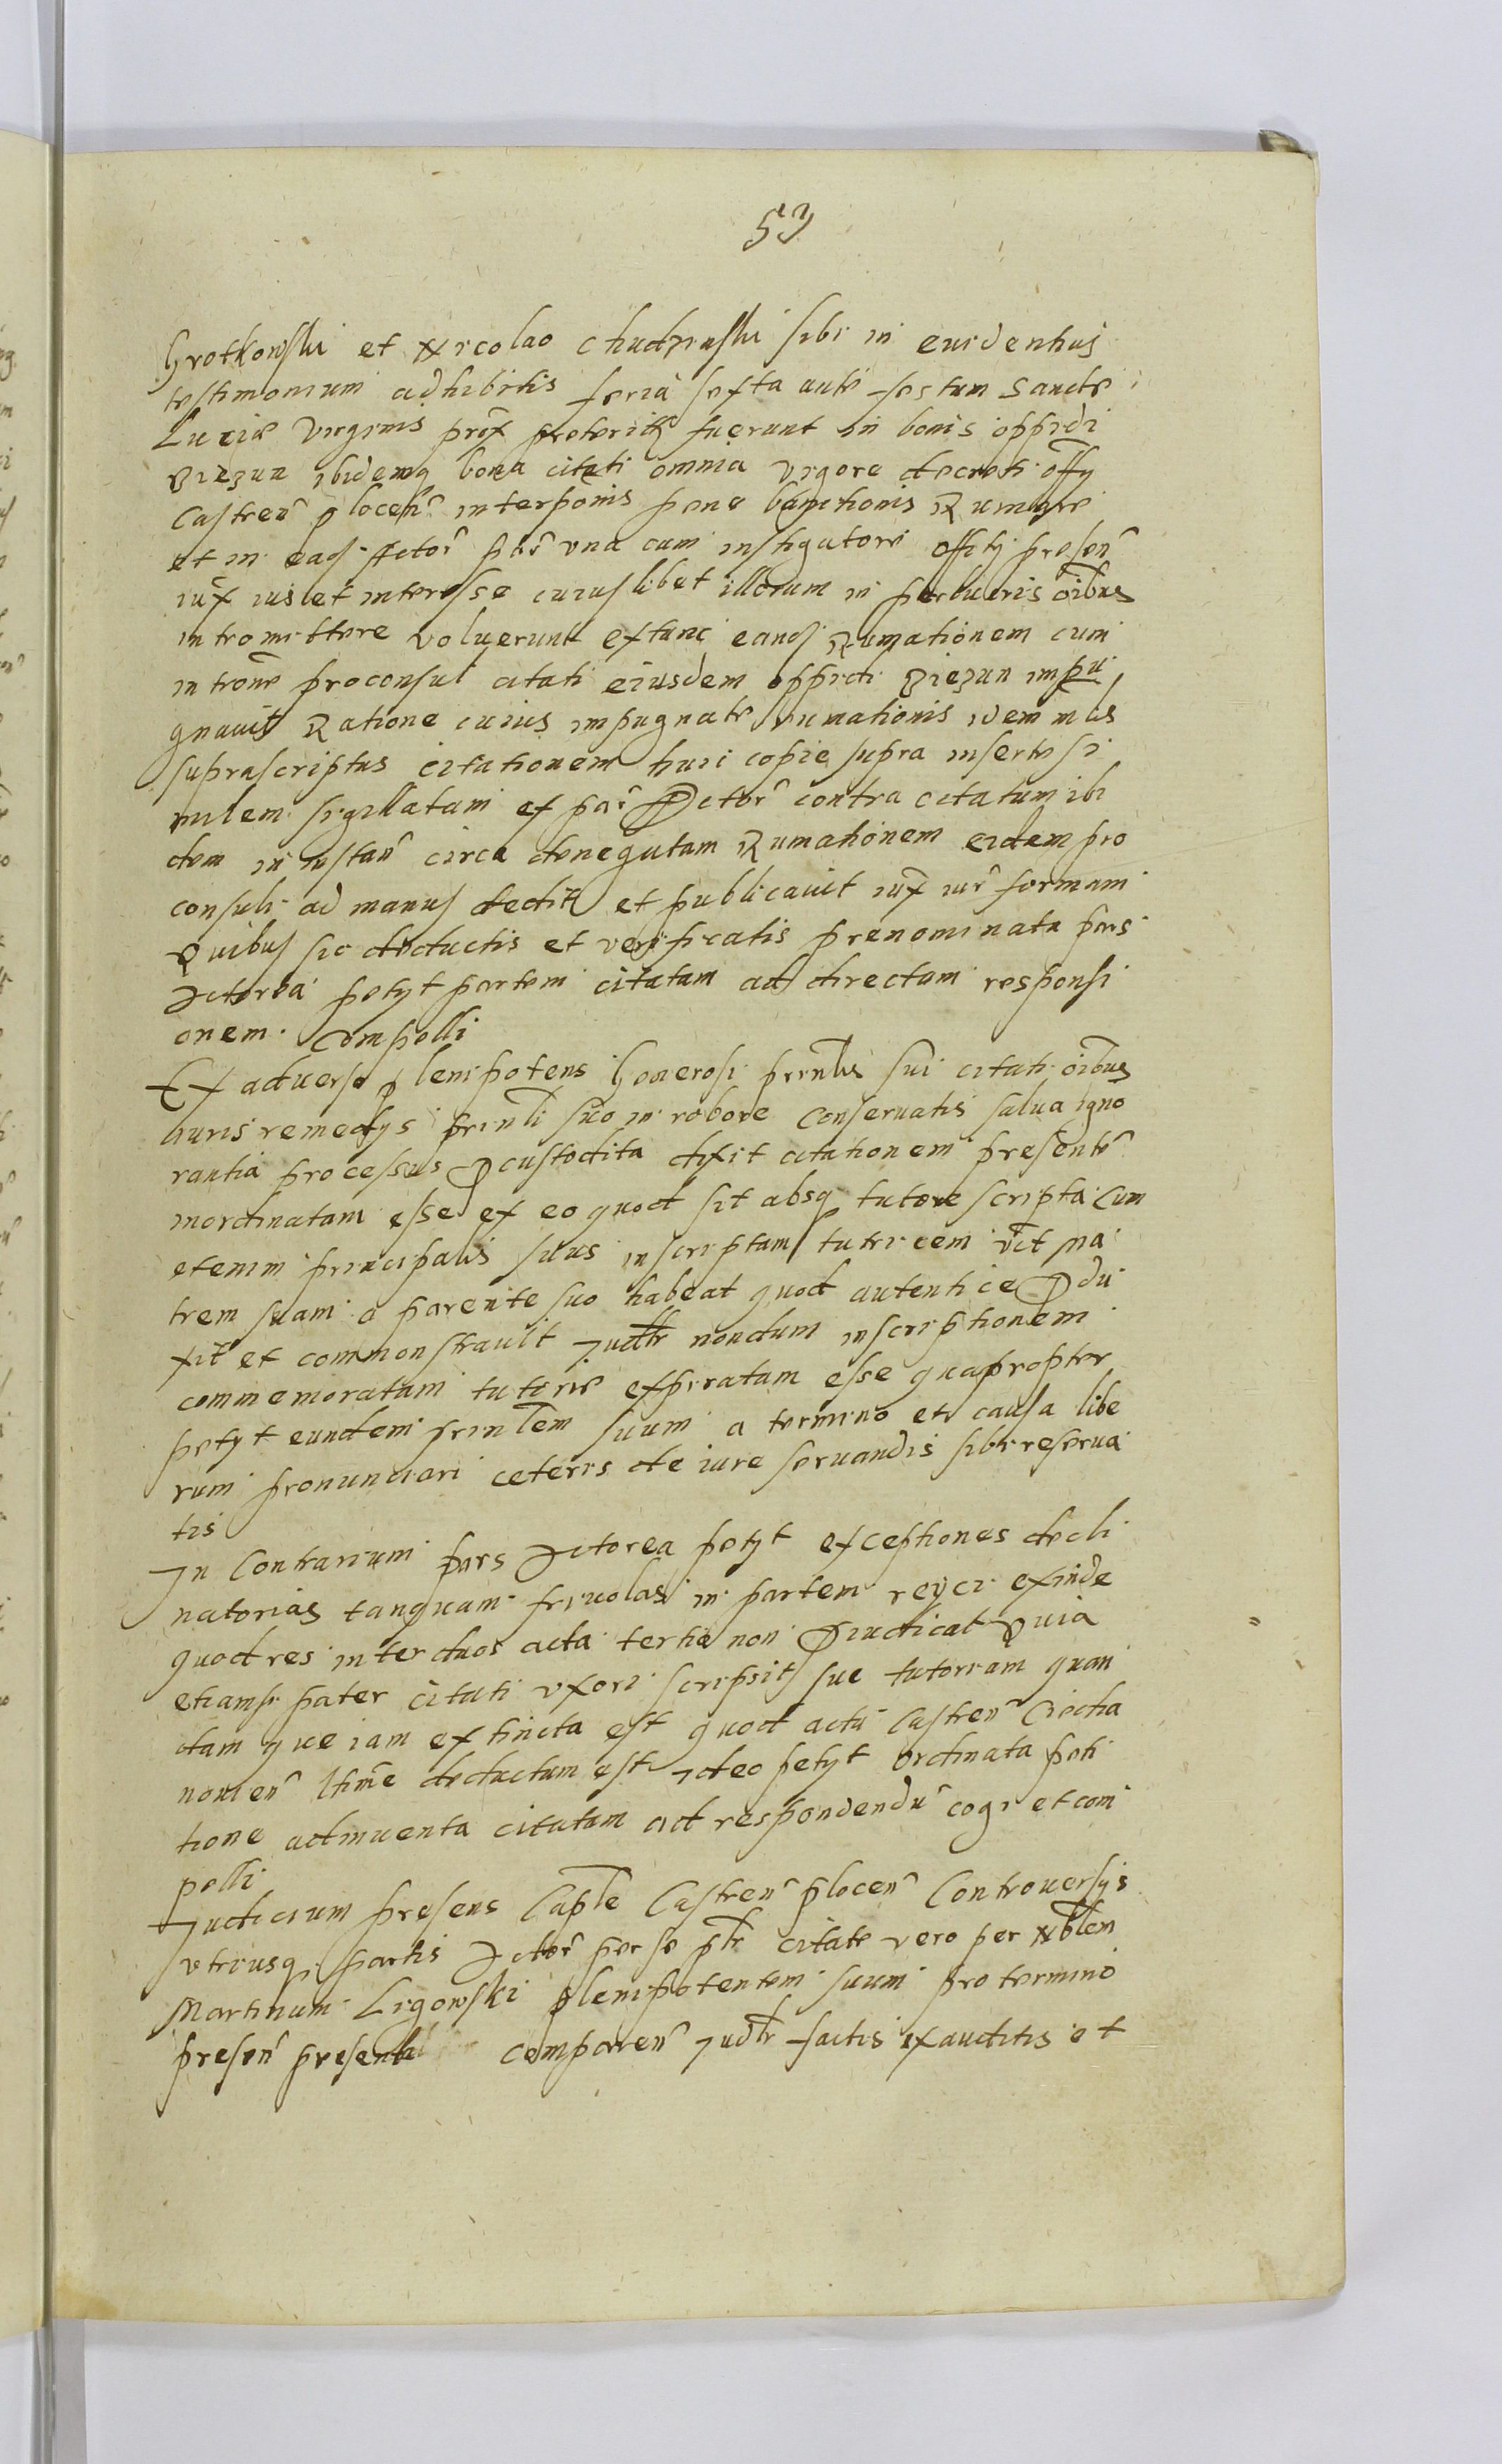 53
Grotkowski et Nicolao Chudzinski sibi in euidentius
testimonium adhibitis feria sexta ante festum Sancte
Lucie Virginis prox preterit fuerunt in bonis oppidi
Biezun ibidemq bona citati omnia vigore decreti offy
Castren plocen interponis pene banitionis Rumare
et in eas Actor ptr vna cum instigatore officij presen
iux ius et interesse cuiuslibet illorum in perlucris oibus
intromittere voluerunt extunc eand Rumationem cum
introne proconsul citati eiusdem oppidi Biezun impu
gnauit Ratione cuius impugnate rumationis idem mis
suprascriptus citationem huic copie supra inserte si
milem sigillatam ex par Actor contra citatum ibi
dem in instan circa denegatam Rumationem eidem pro
consuli ad manus dedit et publicauit iux iur formam
Quibus sic deductis et verificatis prenominata pars
Actorea petyt partem citatam ad directam responsi
onem compelli
Ex aduerso plenipotens Generosi prinlis sui citati oibus
Iuris remedys prinli suo in robore conseruatis salua igno
rantia processus custodita dixit citationem presente
inordinatam esse ex eo quod sit absq tutore scripta cum
etenim principalis suus inscriptam tutricem vdt ma
trem suam a parente suo habeat quod autentice du
xit et commonstrauit Judtr nondum inscriptionem
commemoratam tutorie expiratam esse quapropter
petyt eundem prinlem suum a termino et causa libe
rum pronunciari ceteris de iure seruandis sibi reserua
tis
In Contrarium pars Actorea petyt exceptiones decli
natorias tanquam friuolas in partem reijci exinde
quod res inter duos acta tertio non iudicat Quia
etiamsi pater citati vxori scripsit sue tutoriam quan
dam que iam extincta est quod actu Castren Ciecha
nouien ltime deductum est Ideo petyt ordinata peti
tione adinuenta citatam ad respondendu cogi et com
pelli
Iudicium presens Caple Castren plocen Controuersys
vtriusq partis Actor per se ptr citate vero per Nblem
Martinum Ligowski plenipotentem suum pro termino
presen comparen Judtr factis exauditis et